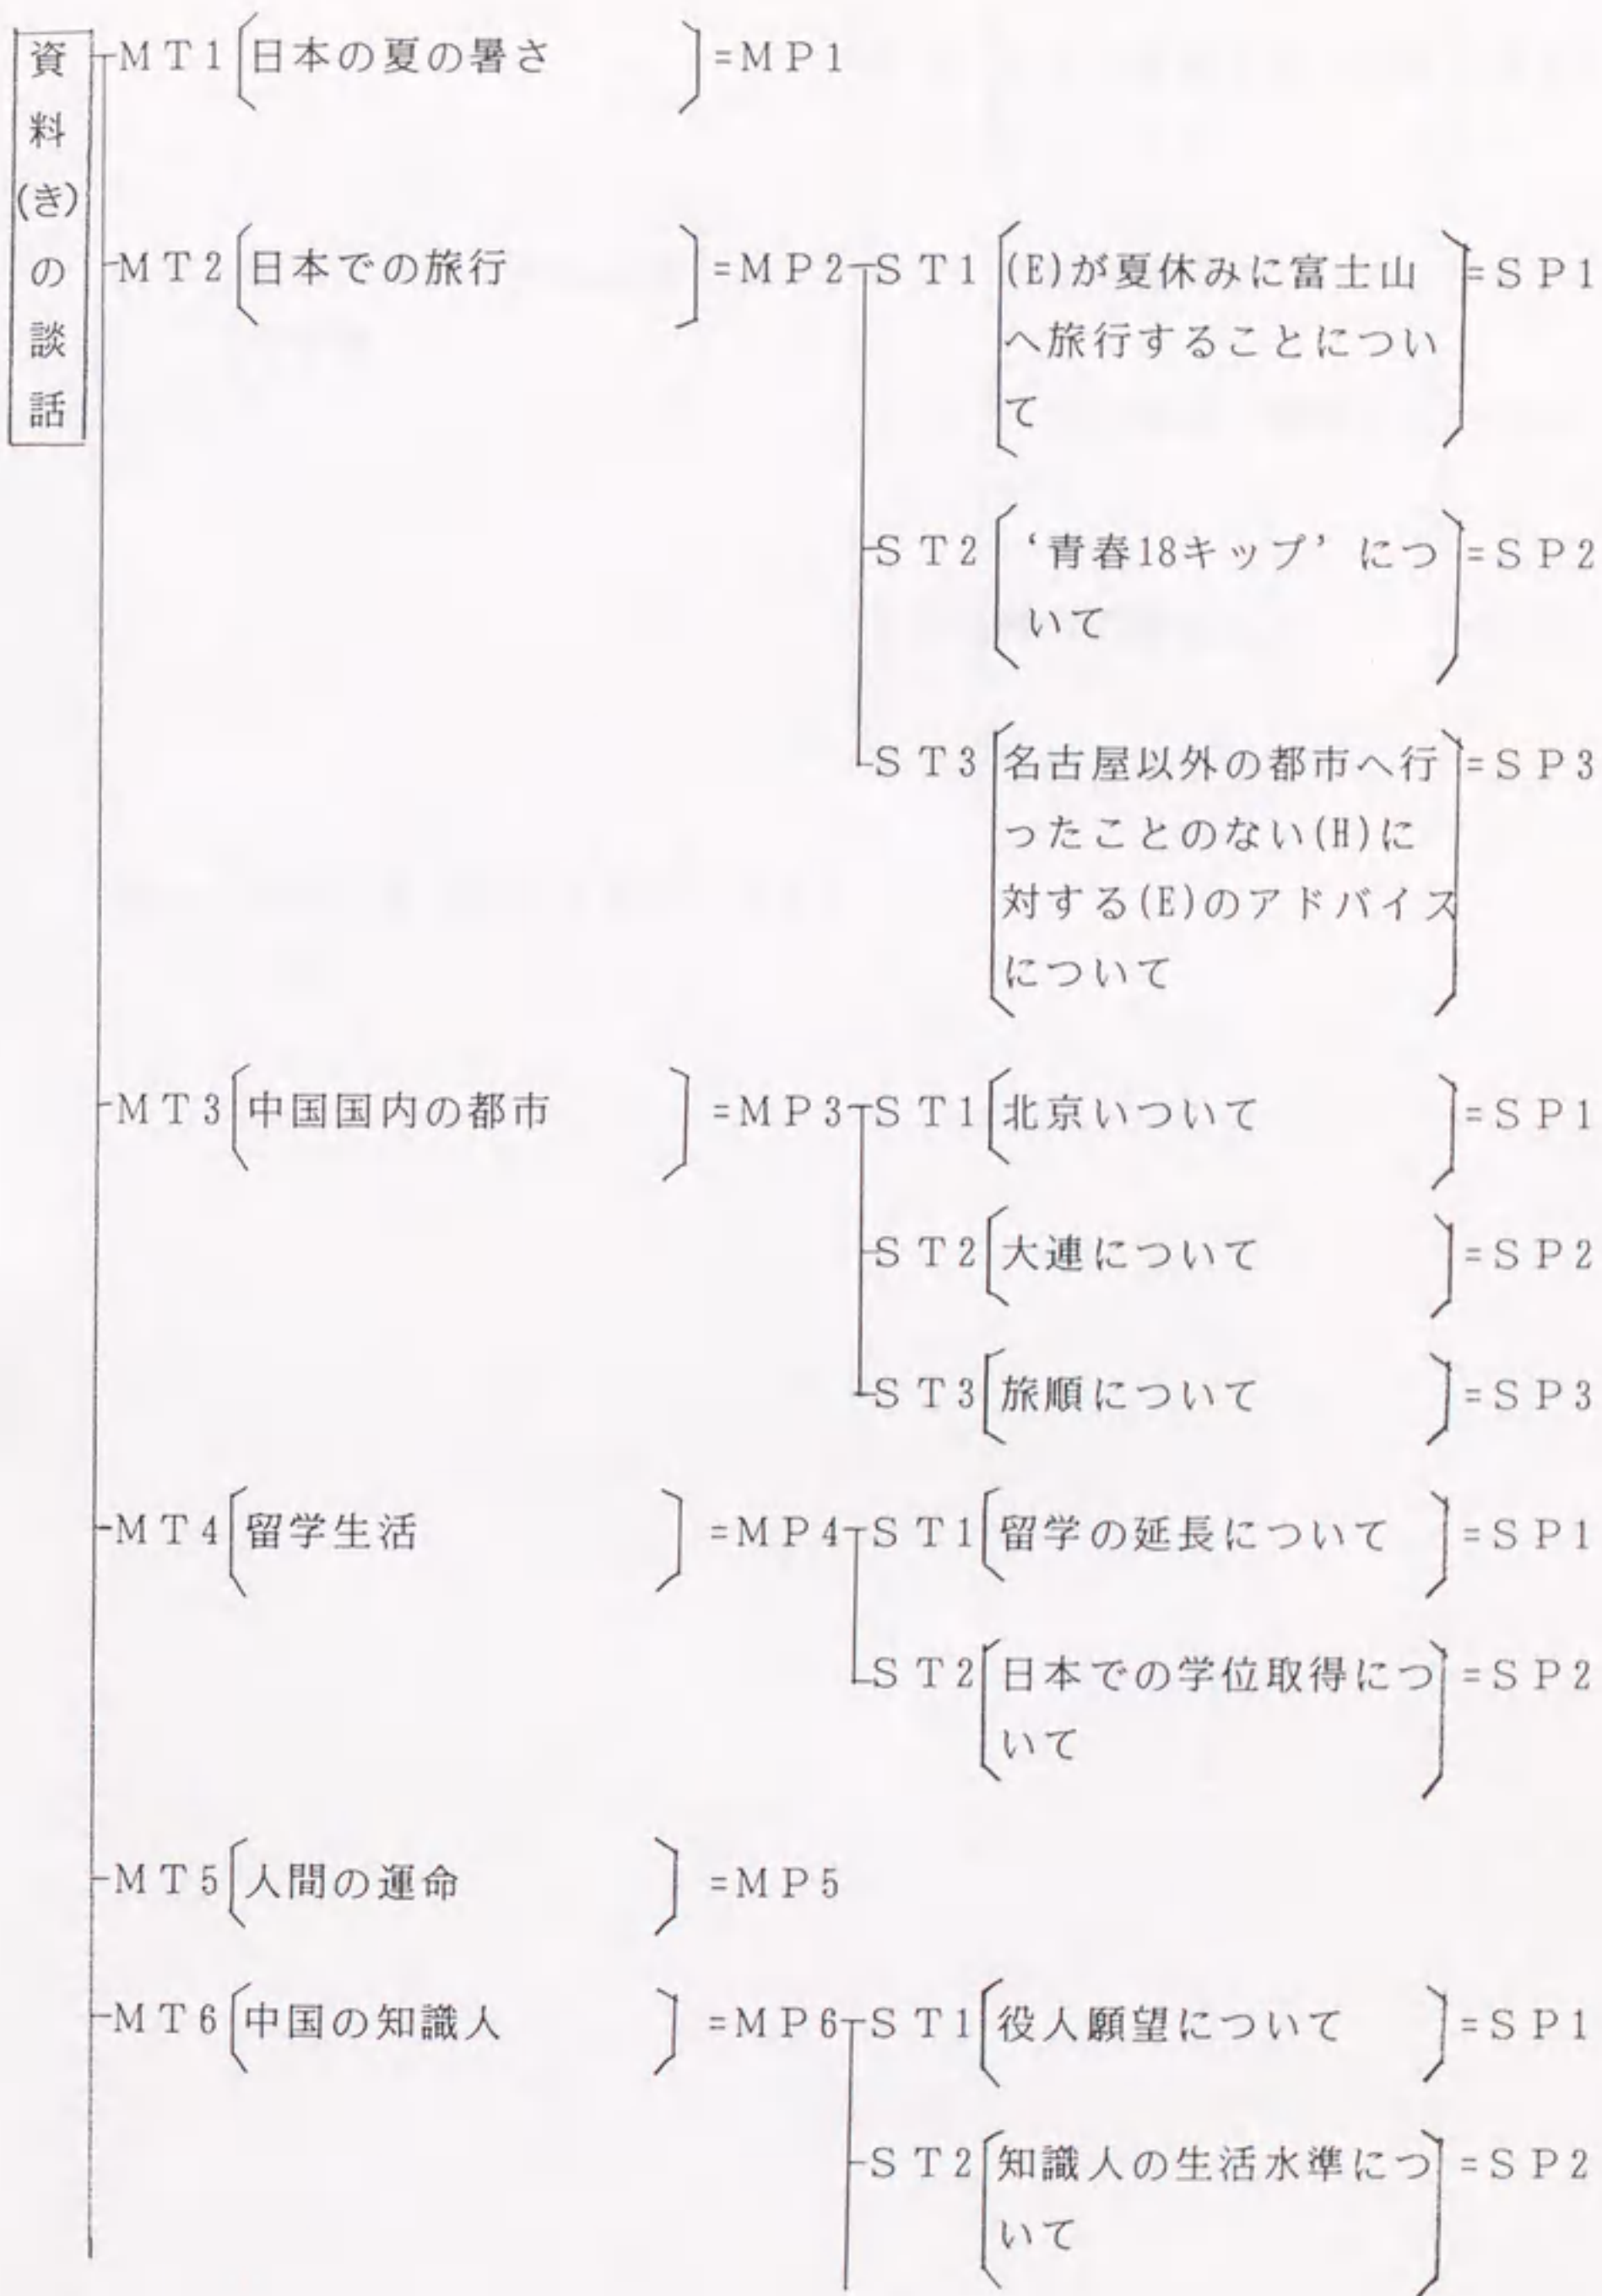 資料(き)の談話
MT1〔日本の夏の暑さ〕=MP1
MT2〔日本での旅行〕=MP2
ST1〔(E)が夏休みに富士山
へ旅行することについ
て〕=SP1
ST2〔‘青春18キップ’につ
いて〕=SP2
ST3〔名古屋以外の都市へ行
ったことのない(H)に
対する(E)のアドバイス
について〕=SP3
MT3〔中国国内の都市〕=MP3
ST1〔北京いついて〕=SP1
ST2〔大連について〕=SP2
ST3〔旅順について〕=SP3
MT4〔留学生活〕=MP4
ST1〔留学の延長について〕=SP1
ST2〔日本での学位取得につ
いて〕=SP2
MT5〔人間の運命〕=MP5
MT6〔中国の知識人〕=MP6
ST1〔役人願望について〕=SP1
ST2〔知識人の生活水準につ
いて〕=SP2